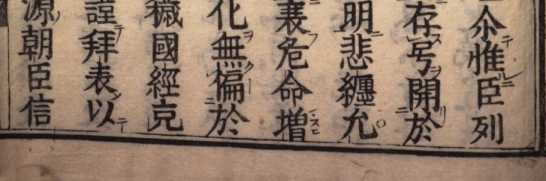 尒惟臣列
存号開於
明悲纒允
危命增
化無徧於
穢國經克
謹拜表以
源朝臣信